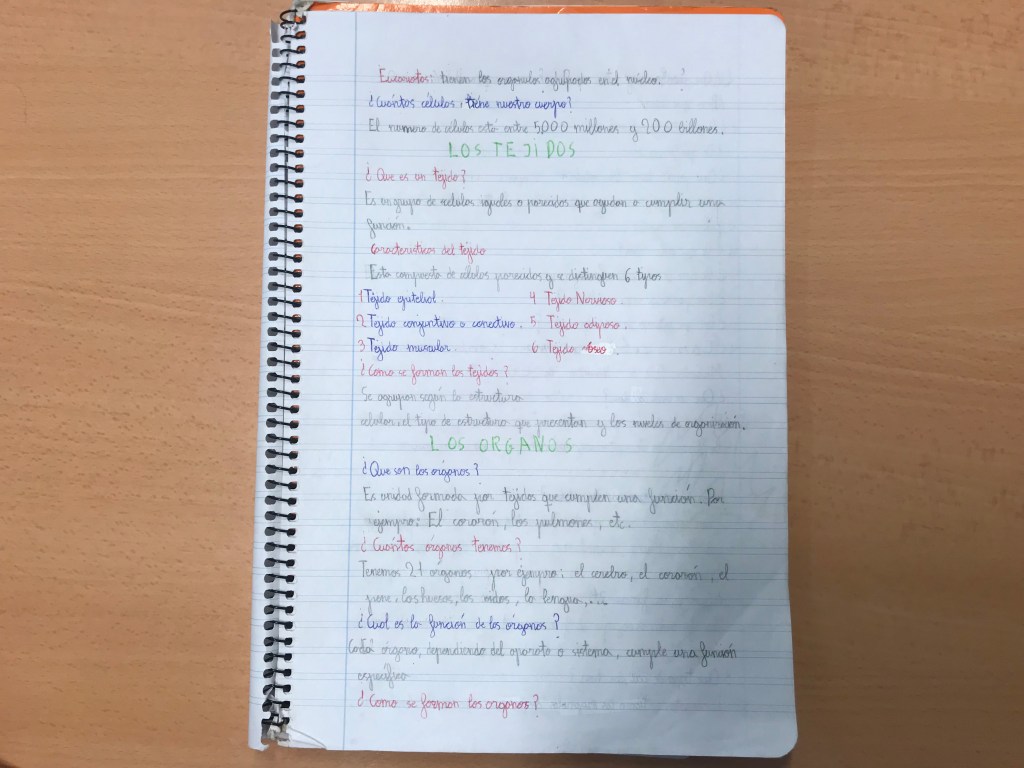 Eucariotas: tienen los organulos agrupados en el núcleo.
¿Cuántas células, tiene nuestro cuerpo?
El numero de células está entre 5000 millones y 200 billones.
LOS TEJIDOS
¿Que es un tejido?
Es un grupo de celulas iguales o parecidas que ayudan a cumplir una
función.
Caracteristicas del tejido
Esta compuesto de células parecidas y se distinguen 6 typos
1 Tejido epitelial. 4 Tejido Nervioso.
2 Tejido conjuntivo o conectivo. 5 Tejido adiposo.
3 Tejido muscular. 6 Tejido oseo.
¿Como se forman los tejidos?
Se agrupan según la estructura
celular, el typo de estructura que presentan y los niveles de organización.
LOS ORGANOS
¿Que son los órganos?
Es unidad formada por tejidos que cumplen una función. Por
ejempro: El corazón, los pulmones, etc.
¿Cuántos órganos tenemos?
Tenemos 21 órganos por ejempro: el cerebro, el corazón, el
pene, los huesos, los oidos, la lengua,...
¿Cual es la función de los órganos?
Cada órgano, dependiendo del aparato o sistema, cumple una función
especifica
¿Como se forman los organos?